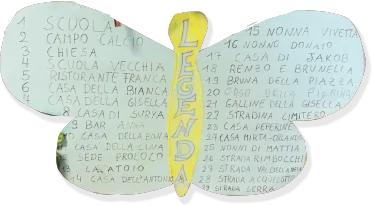 1 SCUOLA
2 CAMPO CALCIO
3 CHIESA
4 SCUOLA VECCHIA
5 RISTORANTE FRANCA
6 CASA DELLA BIANCA
7 CASA DELLA GISELLA
8 CASA DI SURYA
9 BAR
CASA DELLA
CASA DELLA
SEDE PROLOCO
13 LAVATOIO
14 CASA DELL'ANTONIO
LEGENDA
15 NONNA VIVETTA
16 NONNO DONATO
17 CASA DI JAKOB
18 RENZO E BRUNELLA
19 BRUNA DELLA PIAZZA
20 CASA DELLA
21 GALLINE DELLA GISELLA
22 STRADINA LIMITERO
23 CASA PEPERINE
24 CASA MIRTA-ORLANDO
25 NONNI DI MATTIA
26 STRADA RIMBOCCHI
27 STRADA
28 STRADA
29 STRADA SERRA